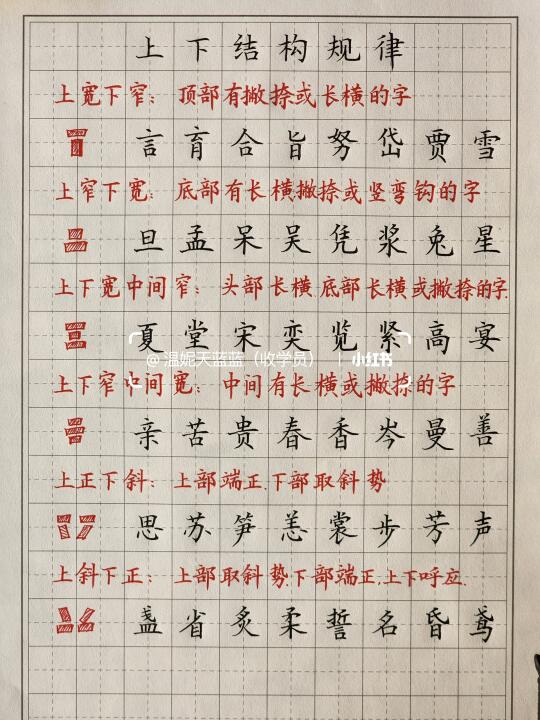 上下结构规律
上宽下窄：顶部有撇捺或长横的字
言育合旨努岱贾雪
上窄下宽：底部有长横撇捺或竖弯钩的字
旦孟呆吴凭浆兔星
上下宽中间窄：头部长横.底部长横或撇捺的字.
夏堂宋奕览紧高宴
@温妮天蓝蓝（收学员） | 小红书
上下窄中间宽：中间有长横或撇捺的字
亲苦贵春香岑曼善
上正下斜：上部端正.下部取斜势
思苏笋恙裳步芳声
上斜下正：上部取斜势.下部端正.上下呼应.
盏省炙柔誓名昏鸢